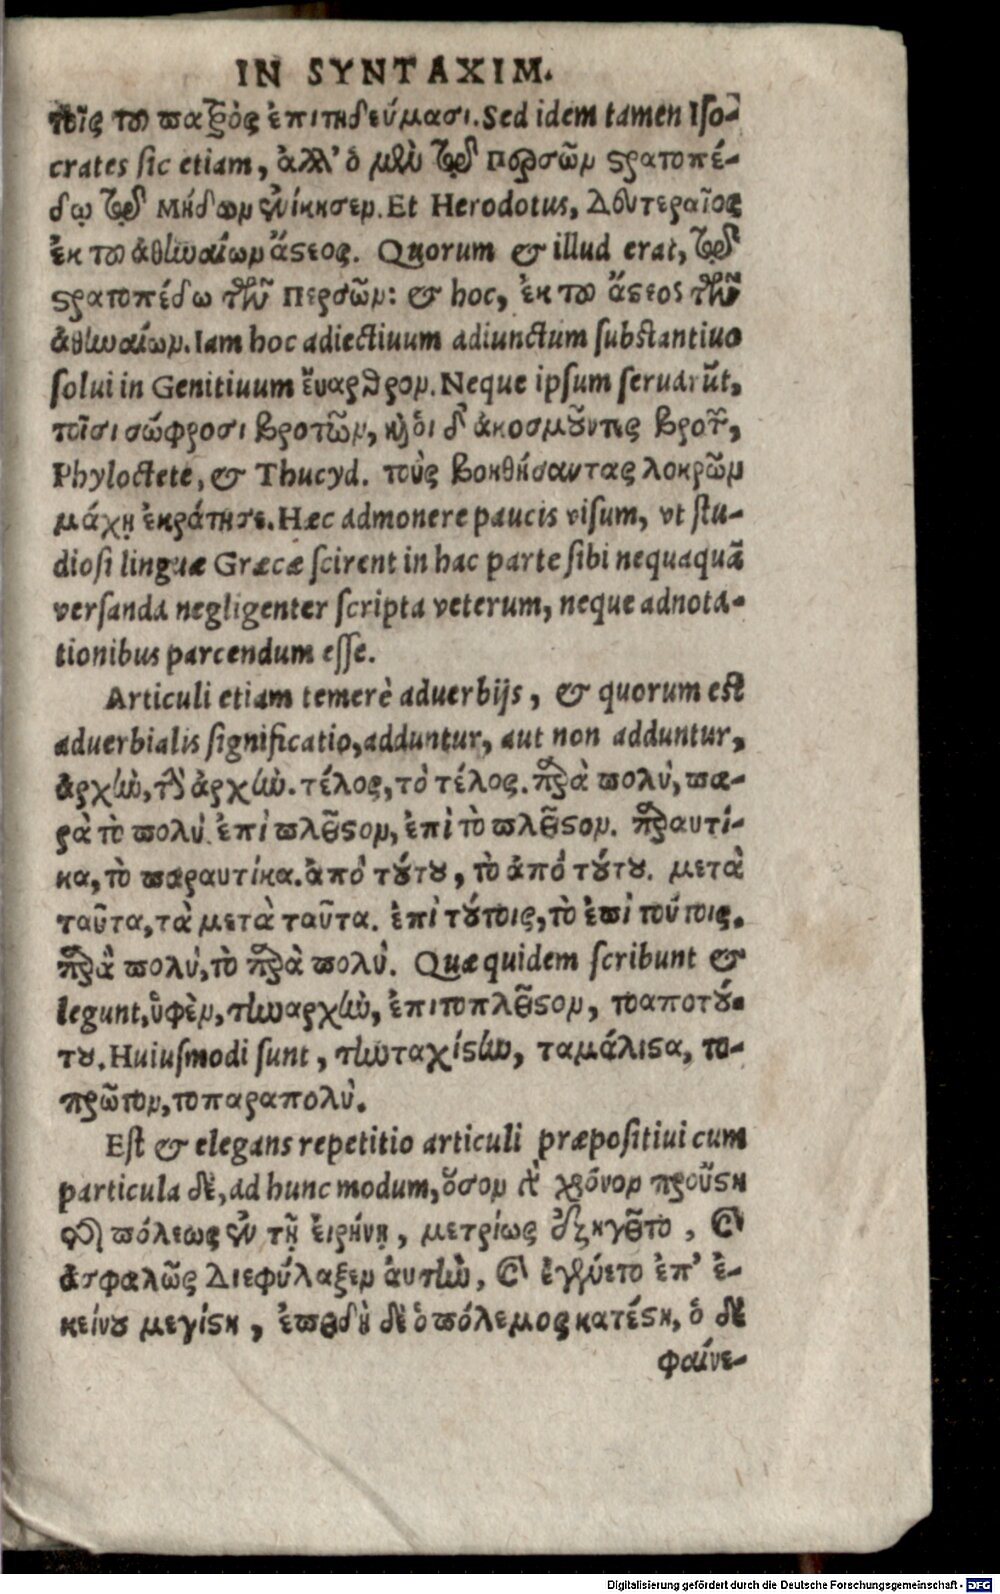 IN SYNTAXIM.
τοῖς τοῦ πατρὸς ἐπιτηδεύμασι. Sed idem tamen Iso-
crates sic etiam, ἀλλ' ὁ μὲν τῷ Περσῶν στρατοπέ-
δῳ τῷ Μήδων ἐνίκησεν. Et Herodotus, Δευτεραῖος
ἐκ τοῦ ἀθηναίων ἄστεος. Quorum & illud erat, τῷ
στρατοπέδω τῶν Περσῶν: & hoc, ἐκ τοῦ ἄστεος τῶν
ἀθηναίων. Iam hoc adiectiuum adiunctum substantiuo
solui in Genitiuum ἔναρθρον. Neque ipsum seruarūt,
τοῖσι σώφροσι βροτῶν, καὶ οἱ δ' ἀκοσμοῦντες βροτῶν,
Phyloctete, & Thucyd. τοὺς βοηθήσαντας λοκρῶν
μάχῃ ἐκράτησε. Hæc admonere paucis visum, vt stu-
diosi linguæ Græcæ scirent in hac parte sibi nequaquā
versanda negligenter scripta veterum, neque adnota-
tionibus parcendum esse.
Articuli etiam temerè aduerbijs, & quorum est
aduerbialis significatio, adduntur, aut non adduntur,
ἀρχὴν, τὴν ἀρχὴν. τέλος, τὸ τέλος. παρὰ πολὺ, πα-
ρὰ τὸ πολὺ. ἐπὶ πλεῖστον, ἐπὶ τὸ πλεῖστον. παραυτί-
κα, τὸ παραυτίκα. ἀπὸ τούτου, τὸ ἀπὸ τούτου. μετὰ
ταῦτα, τὰ μετὰ ταῦτα. ἐπὶ τούτοις, τὸ ἐπὶ τούτοις.
παρὰ πολὺ, τὸ παρὰ πολὺ. Quæ quidem scribunt &
legunt, ὑφὲν, τηναρχὴν, ἐπιτοπλεῖστον, τοαποτού-
του. Huiusmodi sunt, τηνταχίστην, ταμάλιστα, το-
πρῶτον, τοπαραπολὺ.
Est & elegans repetitio articuli præpositiui cum
particula δὲ, ad hunc modum, ὅσον τε χρόνον προὔστη
τῆς πόλεως ἐν τῇ εἰρήνῃ, μετρίως ἐξηγεῖτο, καὶ
ἀσφαλῶς Διεφύλαξεν ἀυτὴν, καὶ ἐγένετο ἐπ' ἐ-
κείνου μεγίστη, ἐπειδὴ δὲ ὁ πόλεμος κατέστη, ὁ δὲ
φαίνε-
Digitalisierung gefördert durch die Deutsche Forschungsgemeinschaft - DFG